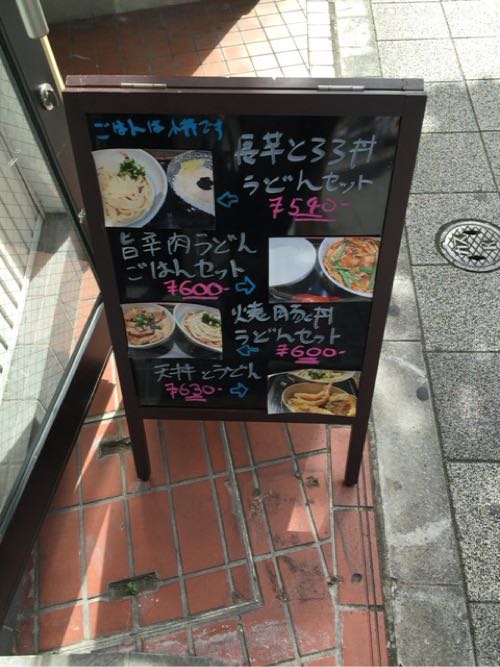 ごはんは小樽です
長芋とろろ丼
うどんセット
¥540-
旨辛肉うどん
ごはんセット
¥600-
焼豚丼
うどんセット
¥600-
天丼とうどん
¥630-